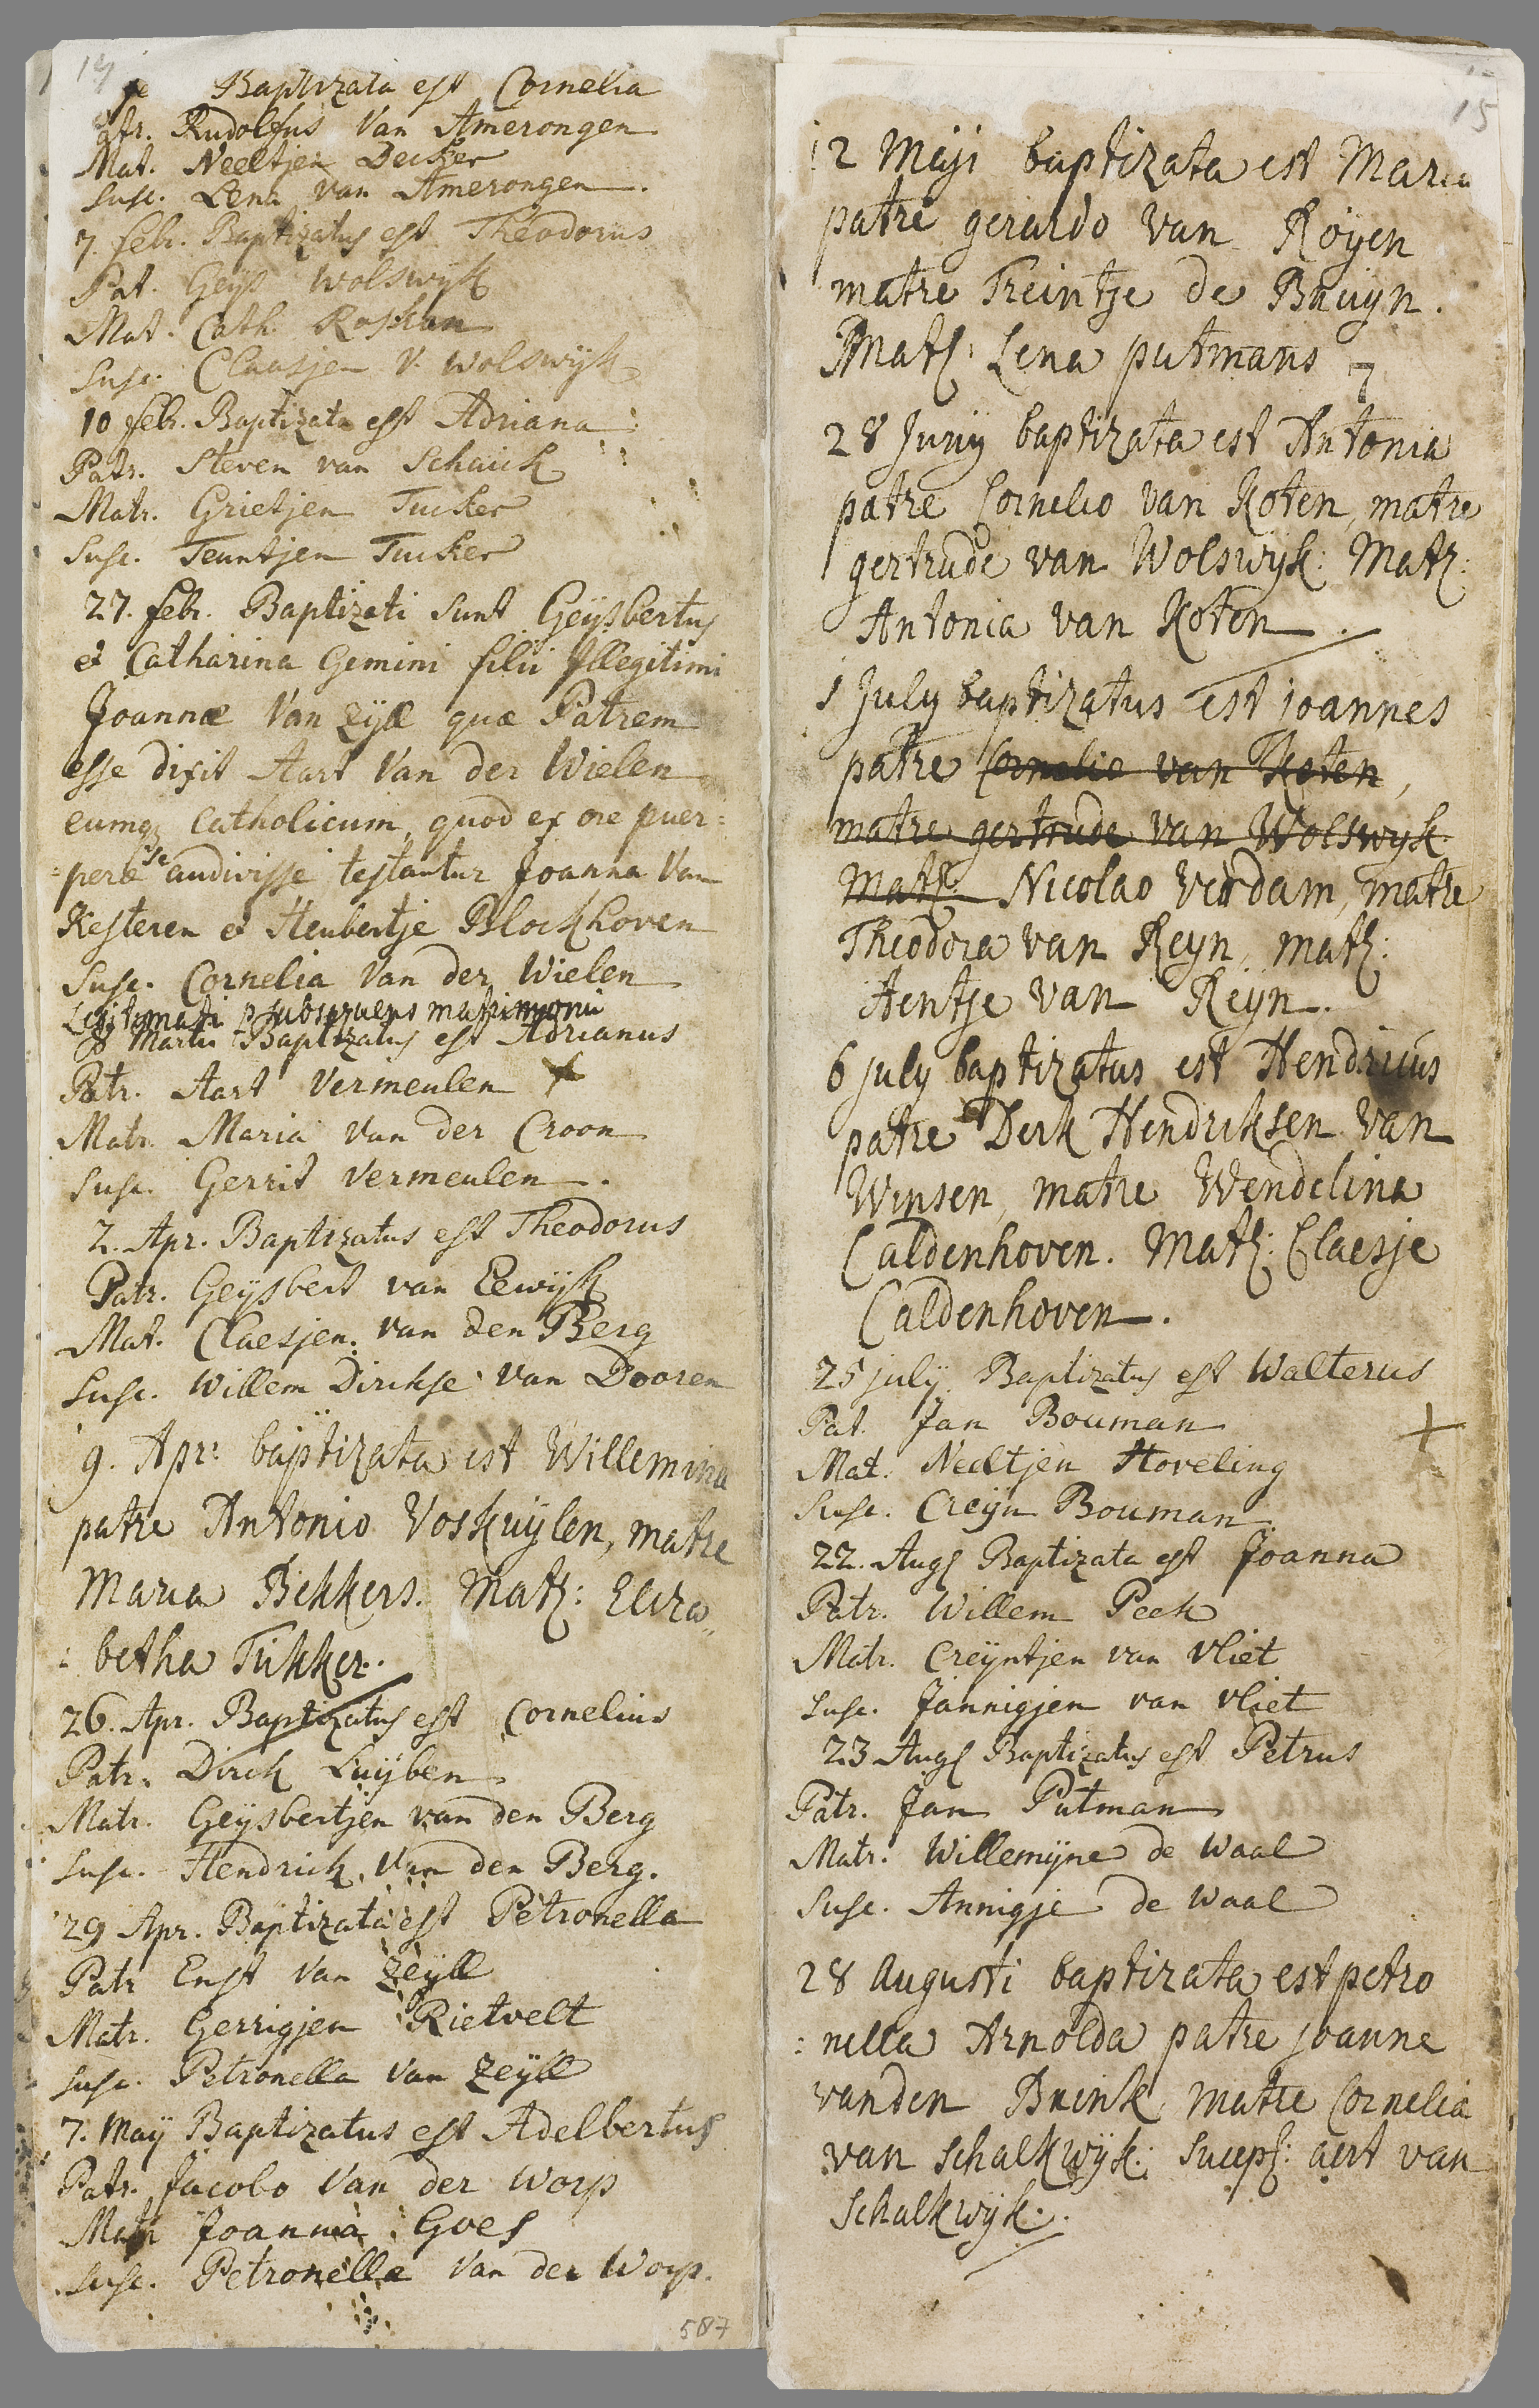 14
Baptizata est Cornelia
Rudolfus Van Amerongen
Mat. Neeltjen Decker
Susc. Lena van Amerongen.
7. febr. Baptizatus est Theodorus
Pat. Geys wolswyk
Mat. Cath. Roskam
Susc. Claasjen V. wolswijk
10 febr. Baptizata est Adriana
Patr. Steven van Schaick
Matr. Grietjen Tucker
Susc. Teuntjen Tucker
27. febr. Baptizati sunt Geijsbertus
et Catharina Gemini filii Illegitimi
Joannæ Van Zijll quæ Patrem
esse dixit Aart Van der Wielen
eumq; Catholicum, quod ex ore puer:
:peræ se audivisse testantur Joanna Van
Kesteren et Heubertje Blockhoven
Susc. Cornelia Van der Wielen
Legitimati p subsequens matrimonii
8 Martii Baptizatus est Adrianus
Patr. Aart Vermeulen
Matr. Maria Van der Croon
Susc. Gerrit Vermeulen.
2. Apr. Baptizatus est Theodorus
Patr. Geijsbert van Eewijk
Mat. Claesjen van den Berg
Susc. Willem Dirckse Van Dooren
9. Apr: baptizata est Willemina
patre Antonio Voskuijlen, matre
Maria Bekkers. Matr: Eliza,,
: betha Tukker.
26. Apr. Baptizatus est Cornelius
Patr. Dirck Luijben
Matr. Geijsbertjen van den Berg
Susc. Hendrick Van den Berg.
29 Apr. Baptizata est Petronella
Patr Enst Van Zeijll
Matr. Gerrigjen Rietvelt
Susc. Petronella Van Zeijll
7. Maij Baptizatus est Adelbertus
Patr. Jacobo Van der Worp
Matr Joanna Goes
Susc. Petronella Van der Worp.
587
15
12 Maji baptizata est Maria
patre gerardo van Royen
matre Treintje de Bruyn.
Matr: Lena putmans
28 Junij baptizata est Antonia
patre Cornelio van Koten, matre
gertrude van Wolswyk: Matr:
Antonia van Koten.
1 July baptizatus est joannes
patre Cornelio van Koten,
matre gertrude van Wolswyk.
Matr: Nicolao Verdam, matre
Theodora van Reyn, matr:
Aentje van Reyn.
6 july baptizatus est Hendricus
patre Derk Hendriksen van
Winsen, matre Wendelina
Caldenhoven. Matr: Claesje
Caldenhoven.
25 julij Baptizatus est Walterus
Pat. Jan Bouman
Mat. Neeltjen Hoveling
Susc. Creijn Bouman
22. Aug. Baptizata est Joanna
Patr. Willem Peek
Matr. Creijntjen van vliet
Susc. Jannigjen van vliet
23 Aug. Baptizatus est Petrus
Patr. Jan Putman
Matr. Willemijne de Waal
Susc. Annigje de Waal
28 Augusti baptizata est petro
: nella Arnolda patre joanne
vanden Brink, matre Cornelia
van Schalkwijk; Sucep: aert van
Schalkwijk.